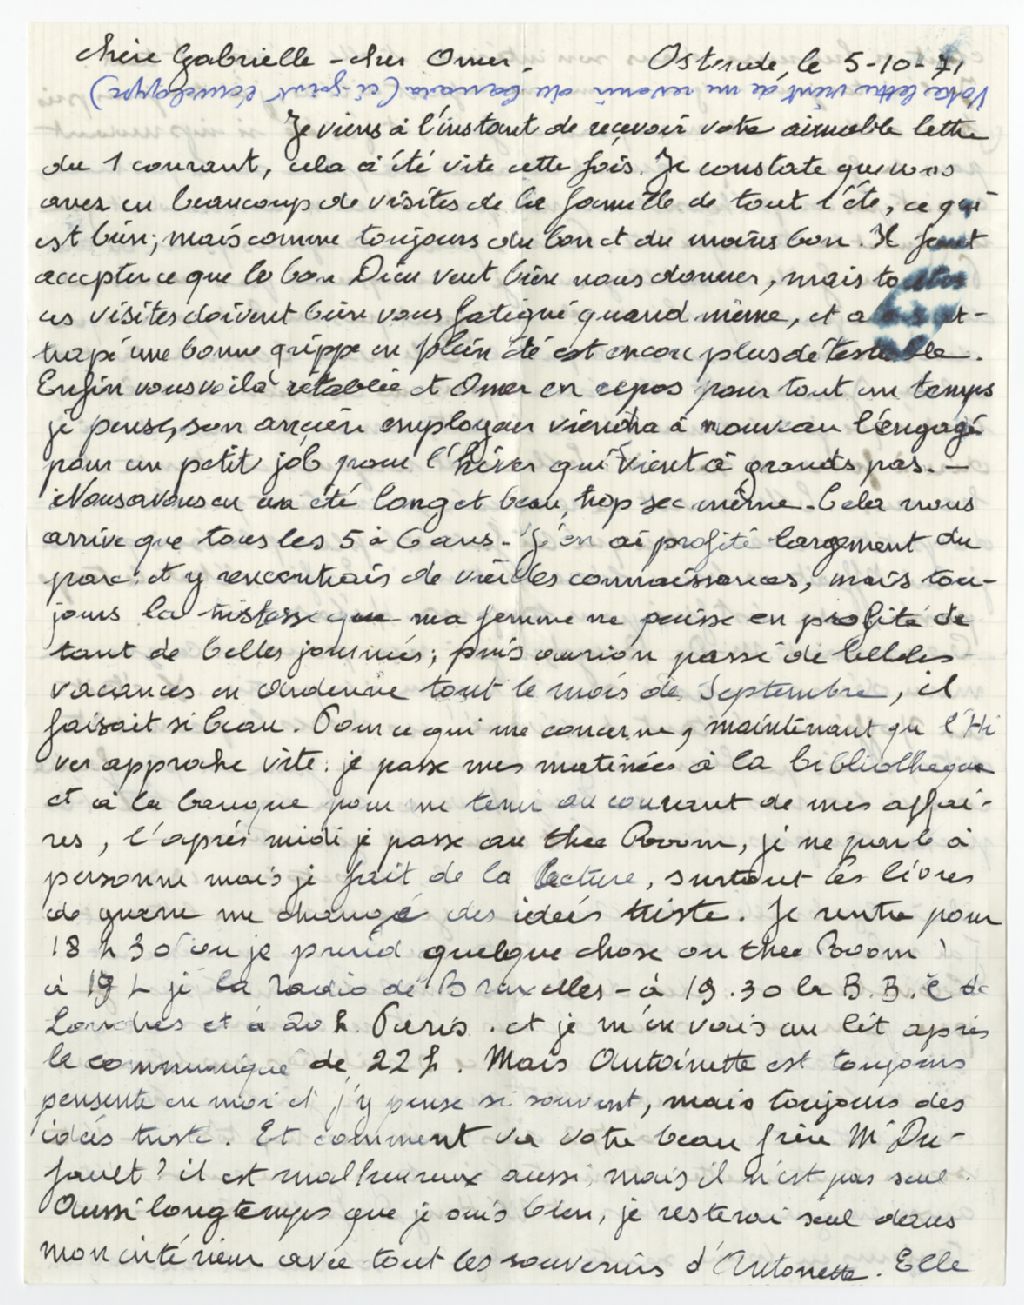 chère Gabrielle - cher Omer. Ostende, le 5-10-71
Votre lettre vient de me revenir du Canada (ci-joint l'enveloppe)
Je viens à l'instant de reçevoir votre aimable lettre
du 1 courant, cela a été vite cette fois. Je constate que vous
avez eu beaucoup de visites de la famille de tout l'été, ce qui
est bien, mais comme toujours du bon et du moins bon. Il faut
accepter ce que le bon Dieu veut bien nous donner, mais toutes
ces visites doivent bien vous fatigué quand même, et at-
trapé une bonne grippe en plein été est encore plus détestable.
Enfin vous voilà rétablie et Omer en repos pour tout un temps
je pense, son ancien employeur viendra à nouveau l'engagé
pour un petit job pour l'hiver qui vient à grands pas. -
Nous avons eu un été long et beau, trop sec même. Cela nous
arrive que tous les 5 à 6 ans. J'en ai profité largement du
parc et y rencontrais de vieilles connaissances, mais tou-
jours la tristesse que ma femme ne puisse en profité de
tant de belles journées; puis aurion passé de belles
vacances en Ardenne tout le mois de Septembre, il
faisait si beau. Pour ce qui me concerne, maintenant que l'Hi
ver approche vite. je passe mes matinées à la bibliothèque
et à la banque pour me tenir au courant de mes affai-
res, l'après midi je passe au thee Room, je ne parle à
personne mais je fait de la lecture, surtout les livres
de guerre me changé des ideés triste. Je rentre pour
18 h 30 ou je prend quelque chose au thee Room
à 19 h j' la Radio de Bruxelles - à 19.30 la B.B.C de
Londres et à 20 h. Paris. et je m'en vais au lit après
le communiqué de 22 h. Mais Antoinette est toujours
pensente en moi et j'y pense si souvent, mais toujours des
idées triste. Et comment va votre beau frère Mr Du-
fault? il est malheureux aussi, mais il n'est pas seul.
Aussi longtemps que je suis bien, je resterai seul dans
mon intérieur avec tout les souvenirs d'Antoinette. Elle